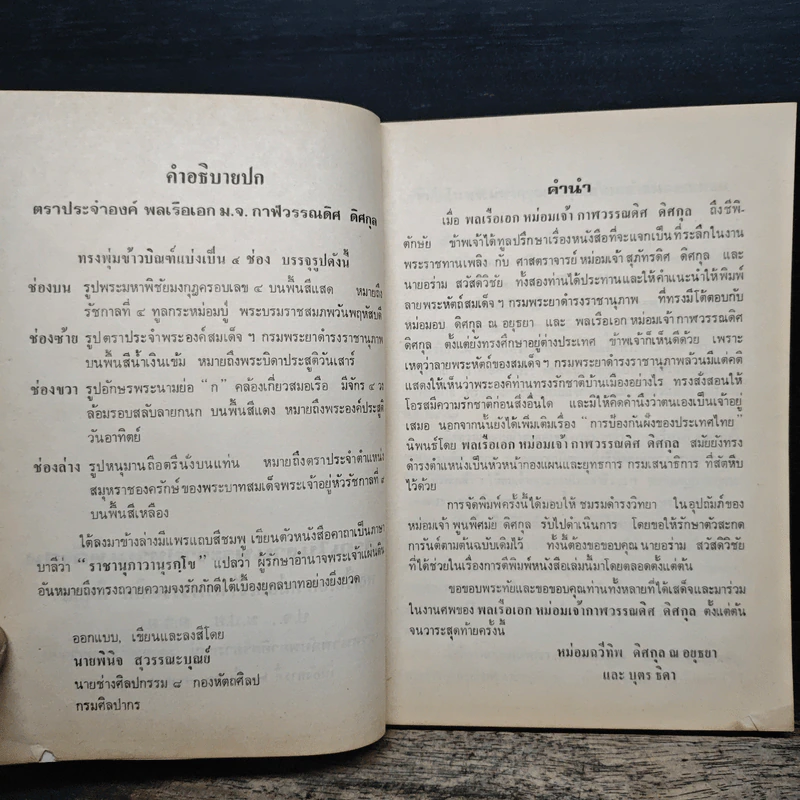 คำอธิบายปก
ตราประจำองค์ พลเรือเอก ม.จ. กาฬวรรณดิศ ดิศกุล
ทรงพุ่มข้าวบิณฑ์แบ่งเป็น ๔ ช่อง บรรจุรูปดังนี้
ช่องบน รูปพระมหาพิชัยมงกุฎครอบเลข ๔ บนพื้นสีแสด หมายถึง
รัชกาลที่ ๔ ทูลกระหม่อมปู่ พระบรมราชสมภพวันพฤหัสบดี
ช่องซ้าย รูปตราประจำพระองค์สมเด็จฯ กรมพระยาดำรงราชานุภาพ
บนพื้นสีน้ำเงินเข้ม หมายถึงพระบิดาประสูติวันเสาร์
ช่องขวา รูปอักษรพระนามย่อ “ก” คล้องเกี่ยวสมอเรือ มีจักร ๔ วง
ล้อมรอบสลับลายกนก บนพื้นสีแดง หมายถึงพระองค์ประสูติ
วันอาทิตย์
ช่องล่าง รูปหนุมานถือตรีนั่งบนแท่น หมายถึงตราประจำตำแหน่ง
สมุหราชองครักษ์ของพระบาทสมเด็จพระเจ้าอยู่หัวรัชกาลที่ ๙
บนพื้นสีเหลือง
ใต้ลงมาข้างล่างมีแพรแถบสีชมพู เขียนตัวหนังสือคาถาเป็นภาษา
บาลีว่า “ราชานุภาวานุรกฺโข” แปลว่า ผู้รักษาอำนาจพระเจ้าแผ่นดิน
อันหมายถึงทรงถวายความจงรักภักดีใต้เบื้องยุคลบาทอย่างยิ่งยวด
ออกแบบ, เขียนและลงสีโดย
นายพินิจ สุวรรณะบุณย์
นายช่างศิลปกรรม ๘ กองหัตถศิลป
กรมศิลปากร
คำนำ
เมื่อ พลเรือเอก หม่อมเจ้า กาฬวรรณดิศ ดิศกุล ถึงชีพิ-
ตักษัย ข้าพเจ้าได้ทูลปรึกษาเรื่องหนังสือที่จะแจกเป็นที่ระลึกในงาน
พระราชทานเพลิง กับ ศาสตราจารย์ หม่อมเจ้า สุภัทรดิศ ดิศกุล และ
นายอร่าม สวัสดิวิชัย ทั้งสองท่านได้ประทานและให้คำแนะนำให้พิมพ์
ลายพระหัตถ์สมเด็จฯ กรมพระยาดำรงราชานุภาพ ที่ทรงมีโต้ตอบกับ
หม่อมอบ ดิศกุล ณ อยุธยา และ พลเรือเอก หม่อมเจ้า กาฬวรรณดิศ
ดิศกุล ตั้งแต่ยังทรงศึกษาอยู่ต่างประเทศ ข้าพเจ้าก็เห็นดีด้วย เพราะ
เหตุว่าลายพระหัตถ์ของสมเด็จฯ กรมพระยาดำรงราชานุภาพล้วนมีแต่คติ
แสดงให้เห็นว่าพระองค์ท่านทรงรักชาติบ้านเมืองอย่างไร ทรงสั่งสอนให้
โอรสมีความรักชาติก่อนสิ่งอื่นใด และมิให้คิดคำนึงว่าตนเองเป็นเจ้าอยู่
เสมอ นอกจากนั้นยังได้เพิ่มเติมเรื่อง “การป้องกันฝั่งของประเทศไทย”
นิพนธ์โดย พลเรือเอก หม่อมเจ้า กาฬวรรณดิศ ดิศกุล สมัยยังทรง
ดำรงตำแหน่งเป็นหัวหน้ากองแผนและยุทธการ กรมเสนาธิการ ที่สัตหีบ
ไว้ด้วย
การจัดพิมพ์ครั้งนี้ได้มอบให้ ชมรมดำรงวิทยา ในอุปถัมภ์ของ
หม่อมเจ้า พูนพิศมัย ดิศกุล รับไปดำเนินการ โดยขอให้รักษาตัวสะกด
การันต์ตามต้นฉบับเดิมไว้ ทั้งนี้ต้องขอขอบคุณ นายอร่าม สวัสดิวิชัย
ที่ได้ช่วยในเรื่องการตีพิมพ์หนังสือเล่มนี้มาโดยตลอดตั้งแต่ต้น
ขอขอบพระทัยและขอขอบคุณท่านทั้งหลายที่ได้เสด็จและมาร่วม
ในงานศพของ พลเรือเอก หม่อมเจ้ากาฬวรรณดิศ ดิศกุล ตั้งแต่ต้น
จนวาระสุดท้ายครั้งนี้
หม่อมถวีทิพ ดิศกุล ณ อยุธยา
และ บุตร ธิดา